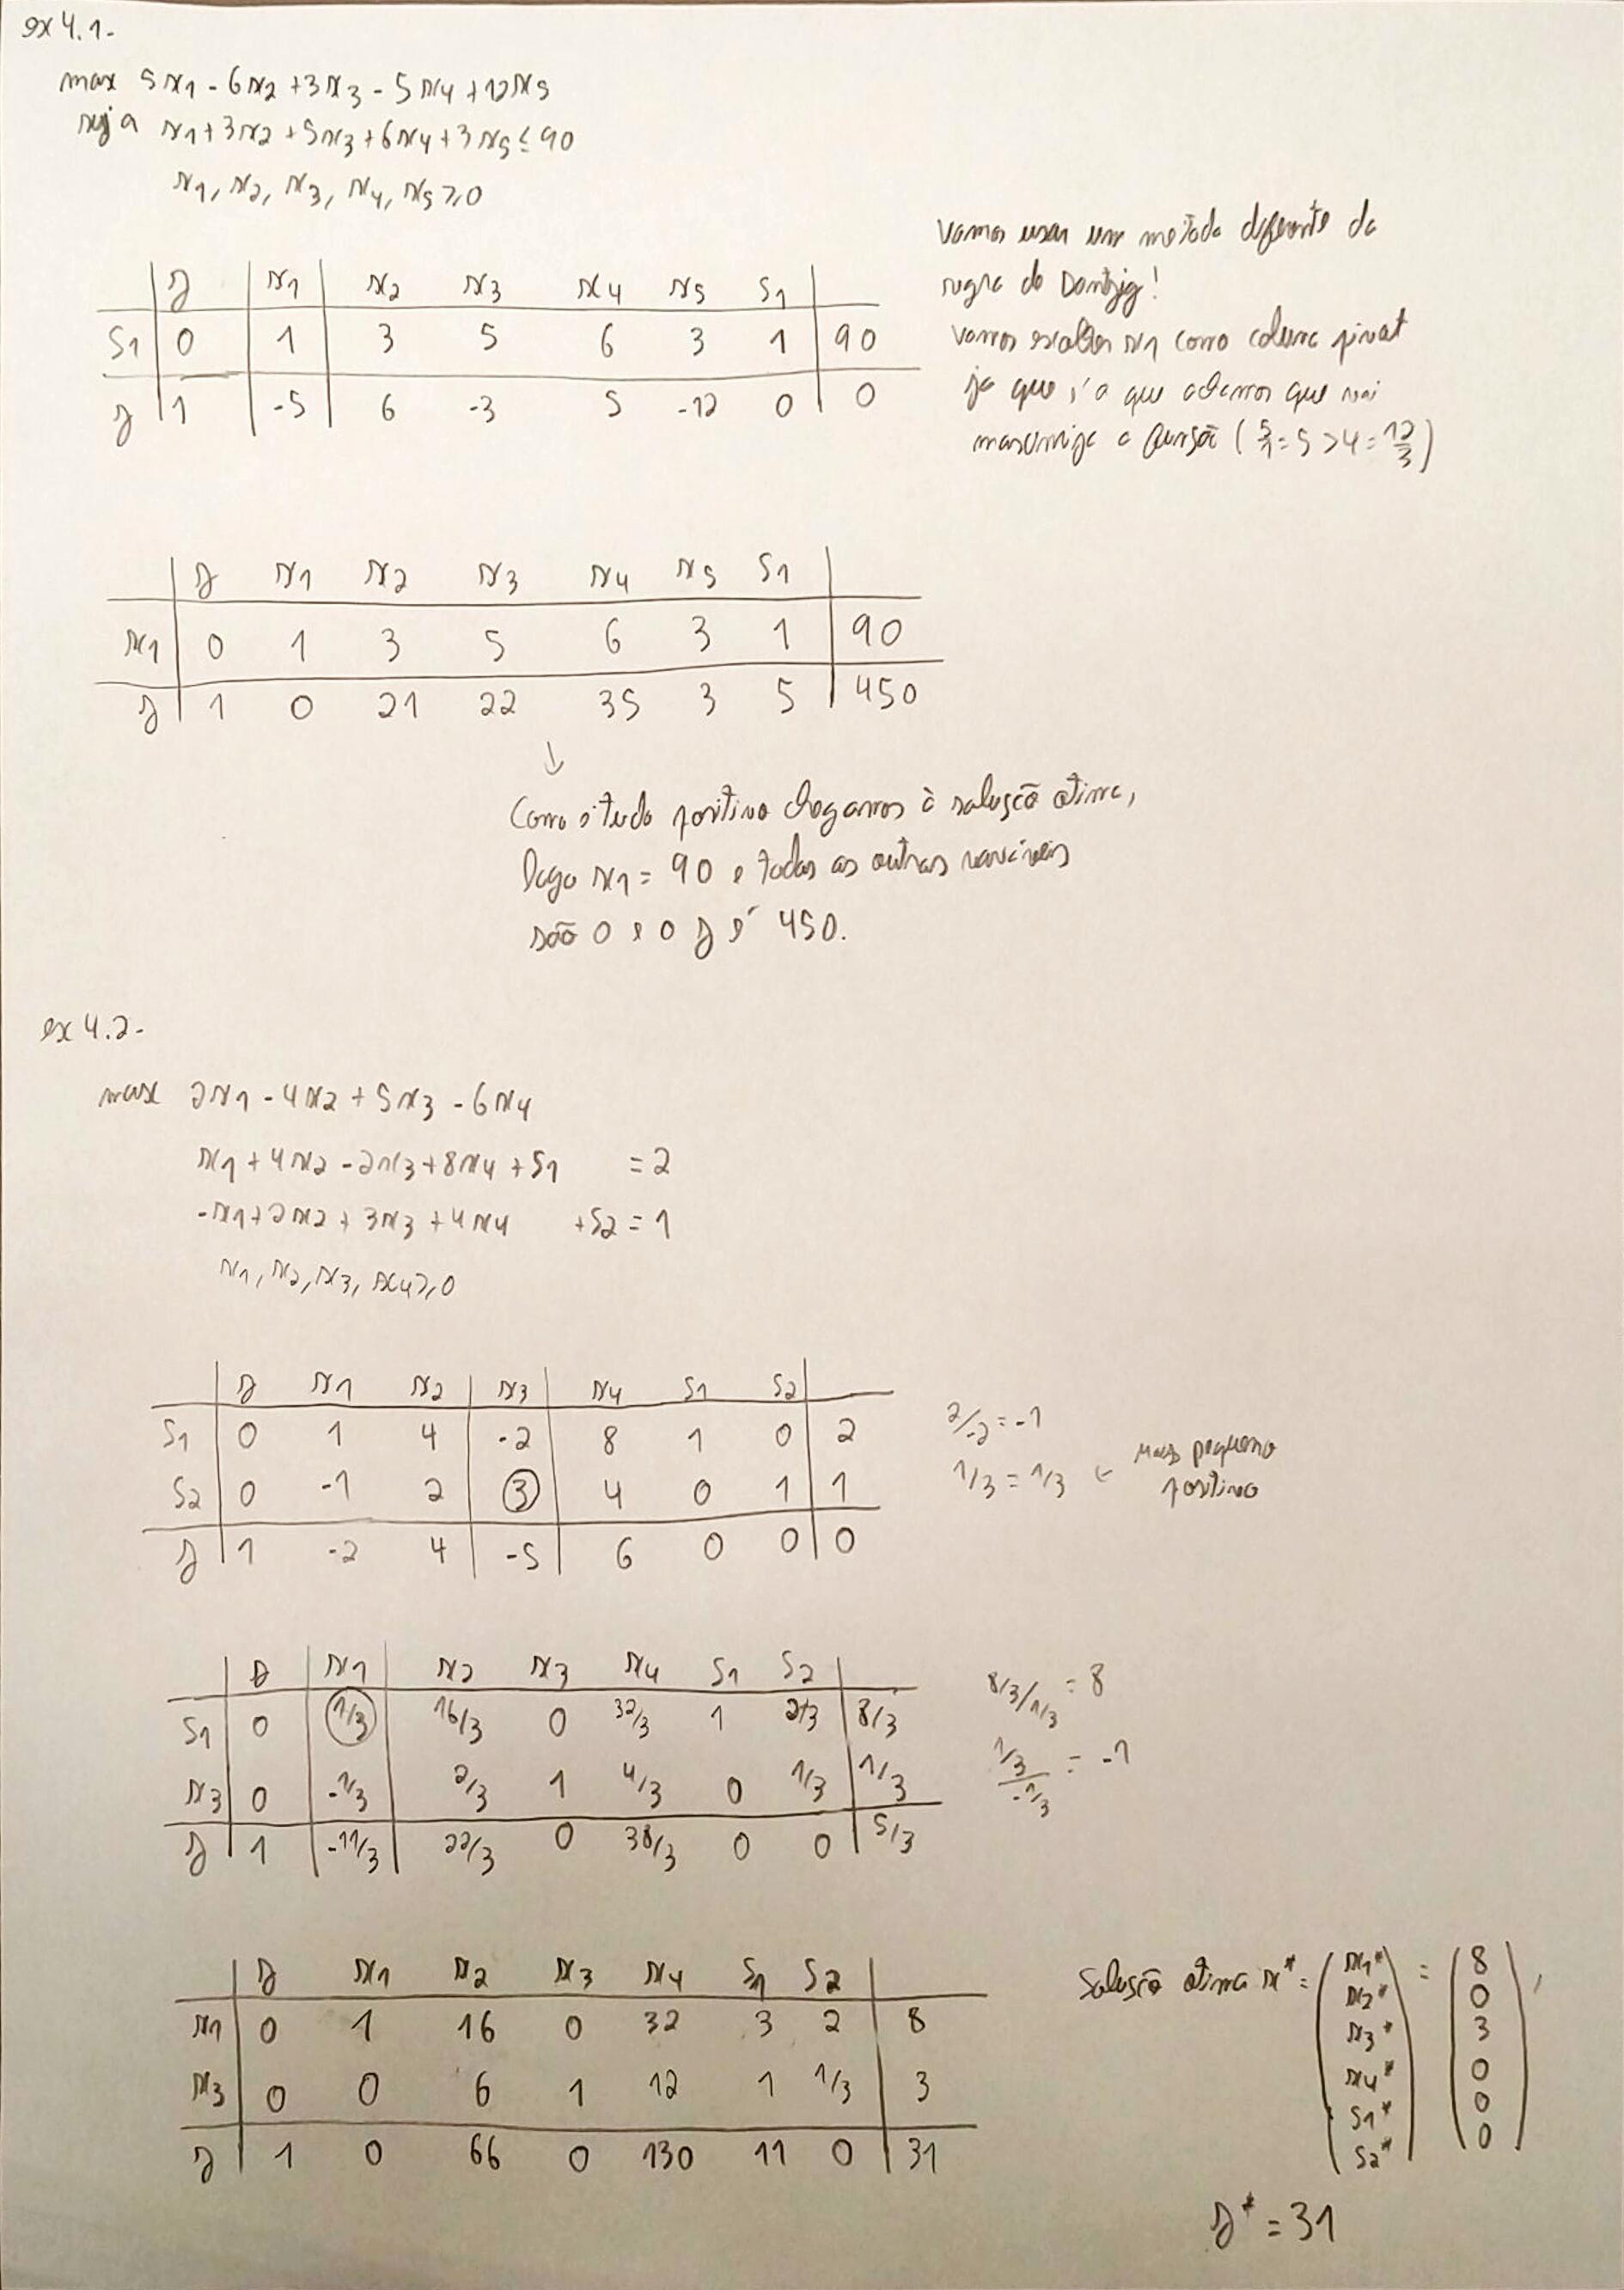 ex 4.1-
max 5x1 - 6x2 + 3x3 - 5x4 + 12x5
suj a x1 + 3x2 + 5x3 + 6x4 + 3x5 ≤ 90
x1, x2, x3, x4, x5 ≥ 0
Vamos usar um método diferente da
regra de Dantzig!
vamos escolher x1 como coluna pivot
ja que é a que achamos que vai
maximiza a função (5/1 = 5 > 4 = 12/3)
z x1 x2 x3 x4 x5 s1
s1 0 1 3 5 6 3 1 90
z 1 -5 6 -3 5 -12 0 0
z x1 x2 x3 x4 x5 s1
x1 0 1 3 5 6 3 1 90
z 1 0 21 22 35 3 5 450
↓
Como é tudo positivo chegamos à solução ótima,
logo x1 = 90 e todas as outras variáveis
são 0 e o z é 450.
ex 4.2-
max 2x1 - 4x2 + 5x3 - 6x4
x1 + 4x2 - 2x3 + 8x4 + s1 = 2
-x1 + 2x2 + 3x3 + 4x4 + s2 = 1
x1, x2, x3, x4 ≥ 0
z x1 x2 x3 x4 s1 s2
s1 0 1 4 -2 8 1 0 2 2/-2 = -1
s2 0 -1 2 3 4 0 1 1 1/3 = 1/3 ← mais pequeno positivo
z 1 -2 4 -5 6 0 0 0
z x1 x2 x3 x4 s1 s2
s1 0 1/3 16/3 0 32/3 1 2/3 8/3 8/3/1/3 = 8
x3 0 -1/3 2/3 1 4/3 0 1/3 1/3 1/3/-1/3 = -1
z 1 -11/3 22/3 0 38/3 0 0 5/3
z x1 x2 x3 x4 s1 s2
x1 0 1 16 0 32 3 2 8
x3 0 0 6 1 12 1 1/3 3
z 1 0 66 0 130 11 0 31
Solução ótima x* = (x1* x2* x3* x4* s1* s2*) = (8 0 3 0 0 0),
z* = 31